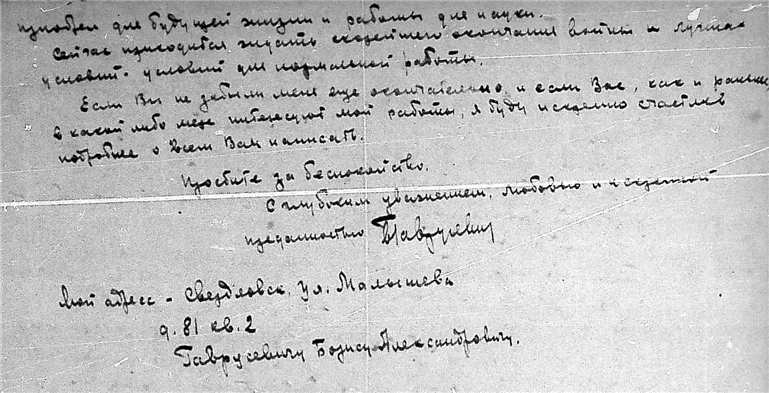 приобрел для будущей жизни и работы для науки.
Сейчас приходится ждать скорейшего окончания войны и лучших
условий - условий для нормальной работы.
Если Вы не забыли меня еще окончательно, и если Вас, как и раньше,
в какой либо мере интересуют мои работы, я буду искренно счастлив
подробнее о всем Вам написать.
Простите за беспокойство.
С глубоким уважением, любовью и искренной
преданностью Гаврусевич
Мой адрес - Свердловск, Ул. Малышева
д. 81 кв. 2
Гаврусевичу Борису Александровичу.